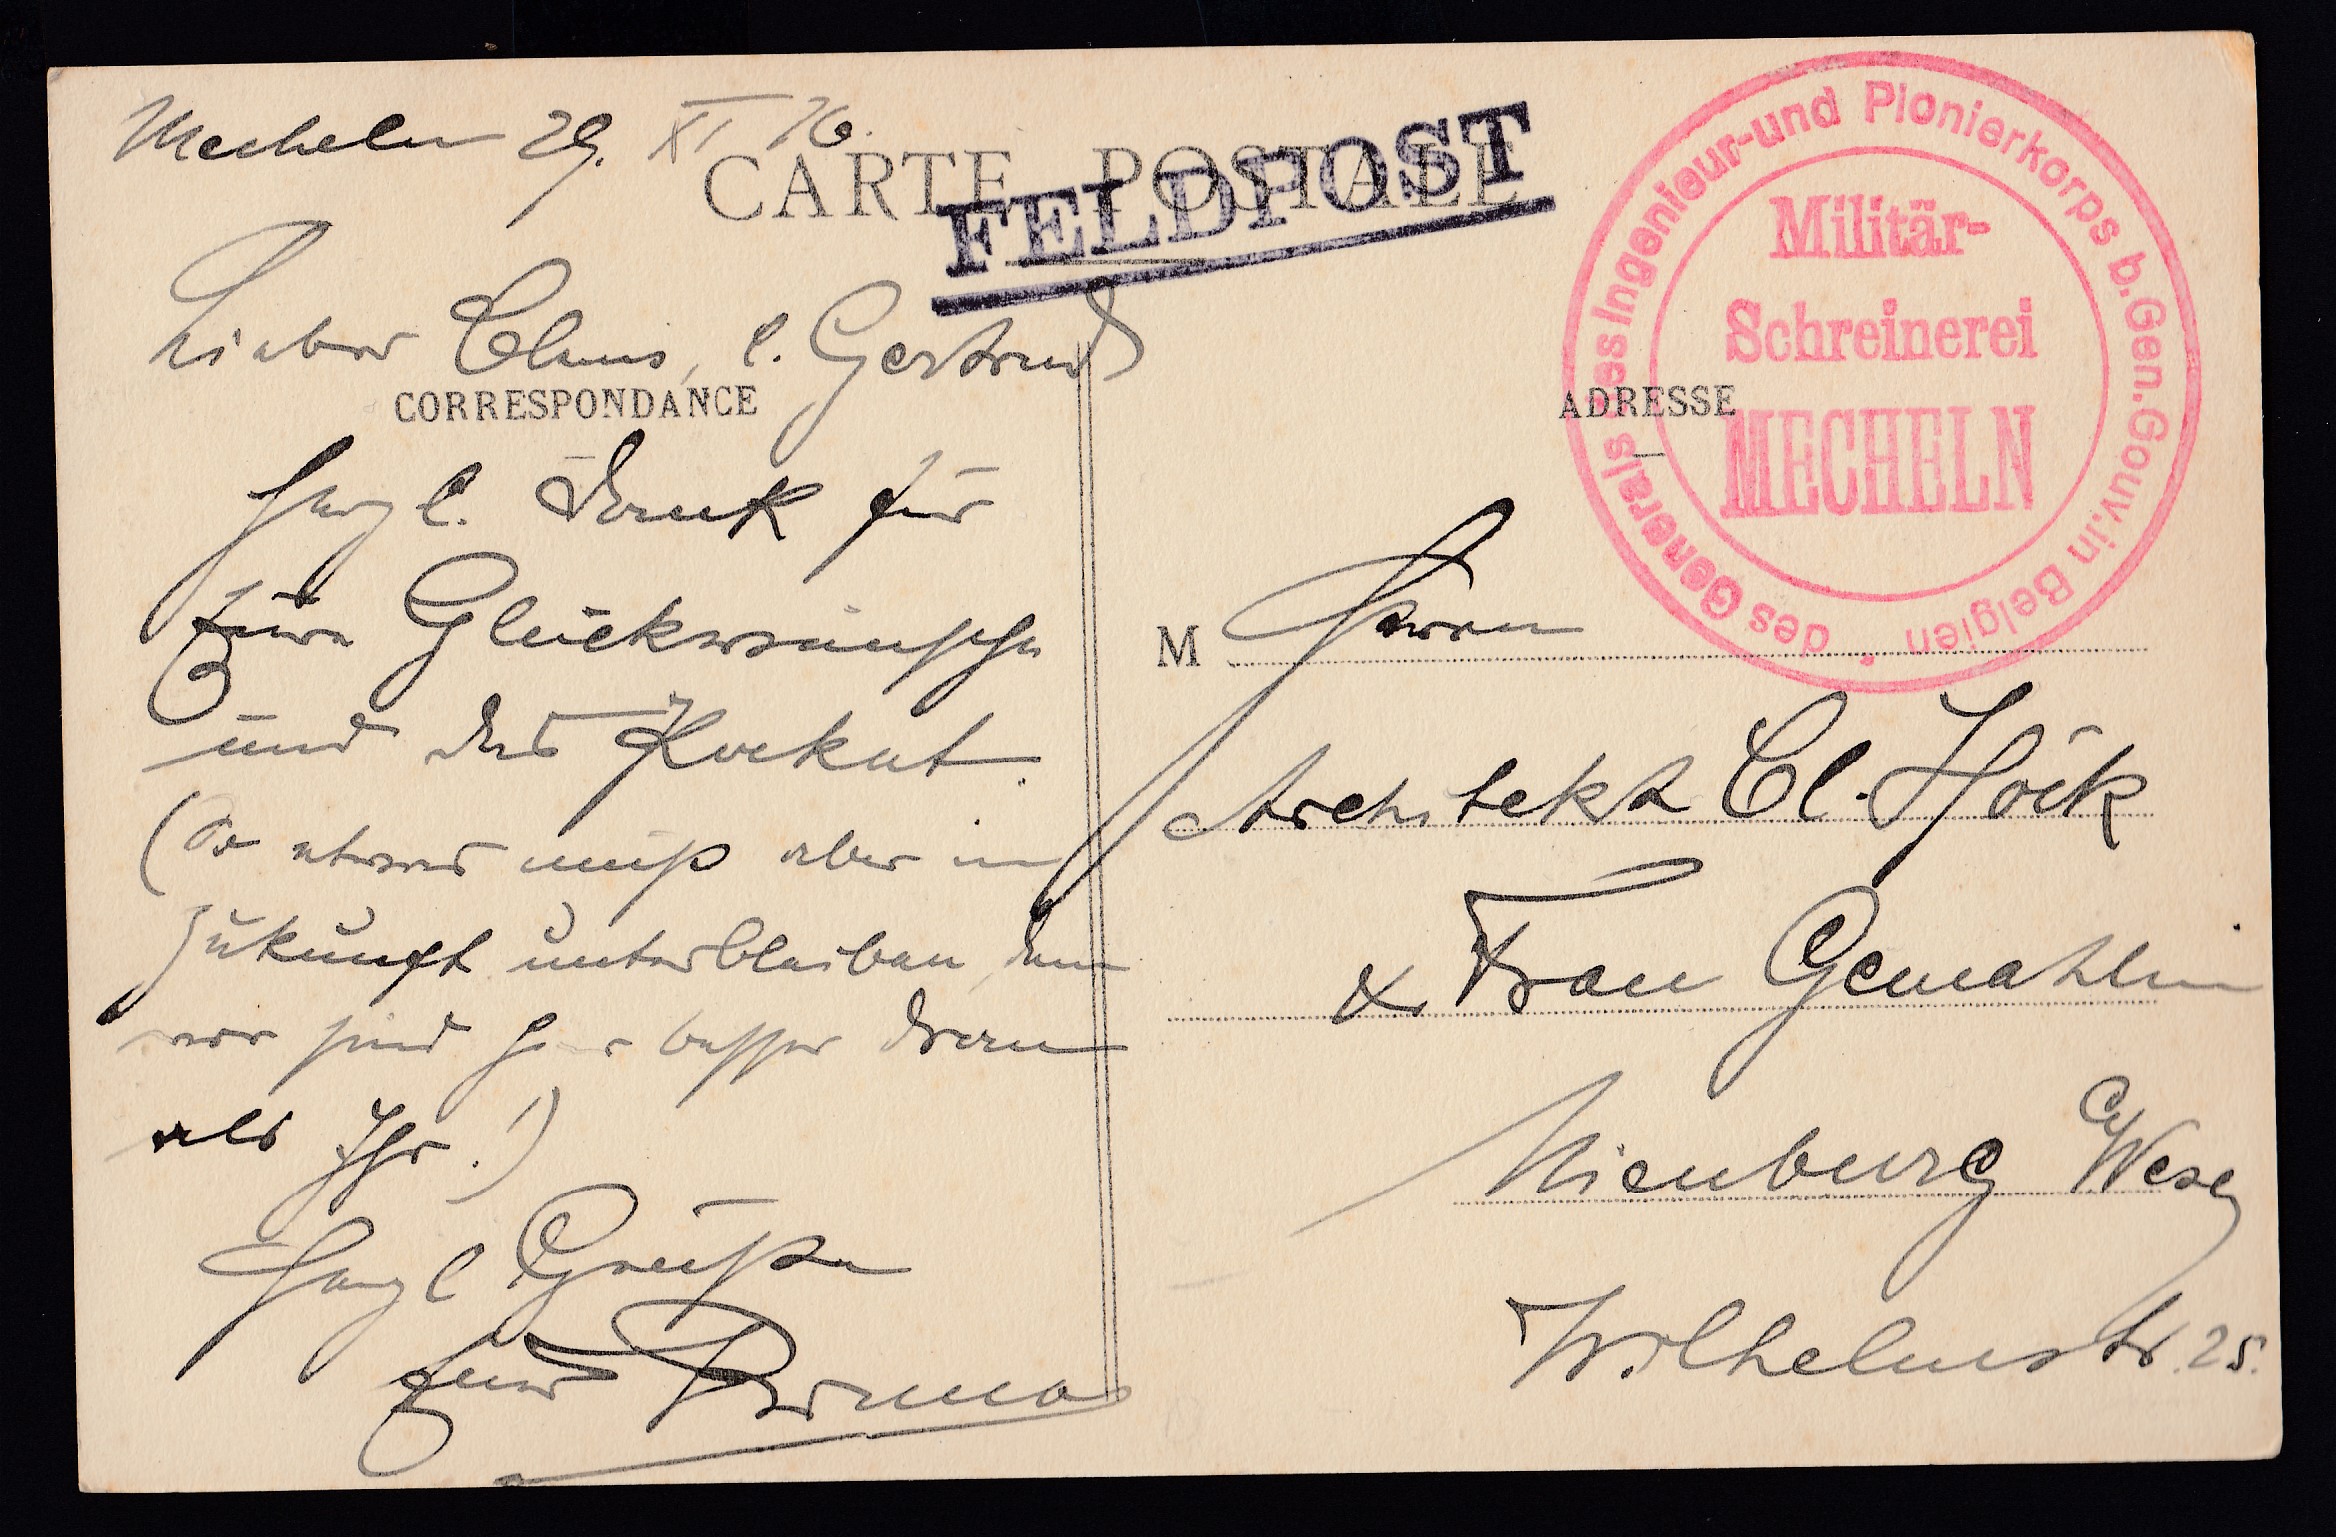 Mecheln 29. XI 16.
CARTE POSTALE
FELDPOST
Lieber Claus, l. Gertrud
CORRESPONDANCE
Herzl. Dank für
Eure Glückwünsche
und das Packet.
(So etwas muß aber in
Zukunft unterbleiben, denn
wir sind hier besser dran
als Ihr!)
Herzl Grüße
Euer
des Generals des Ingenieur-und Pionierkorps b.Gen.Gouv.in Belgien *
Militär-
Schreinerei
MECHELN
ADRESSE
M Herrn
Architekt Cl. Höck
& Frau Gemahlin
Nienburg a/Weser
Wilhelmstr. 25.